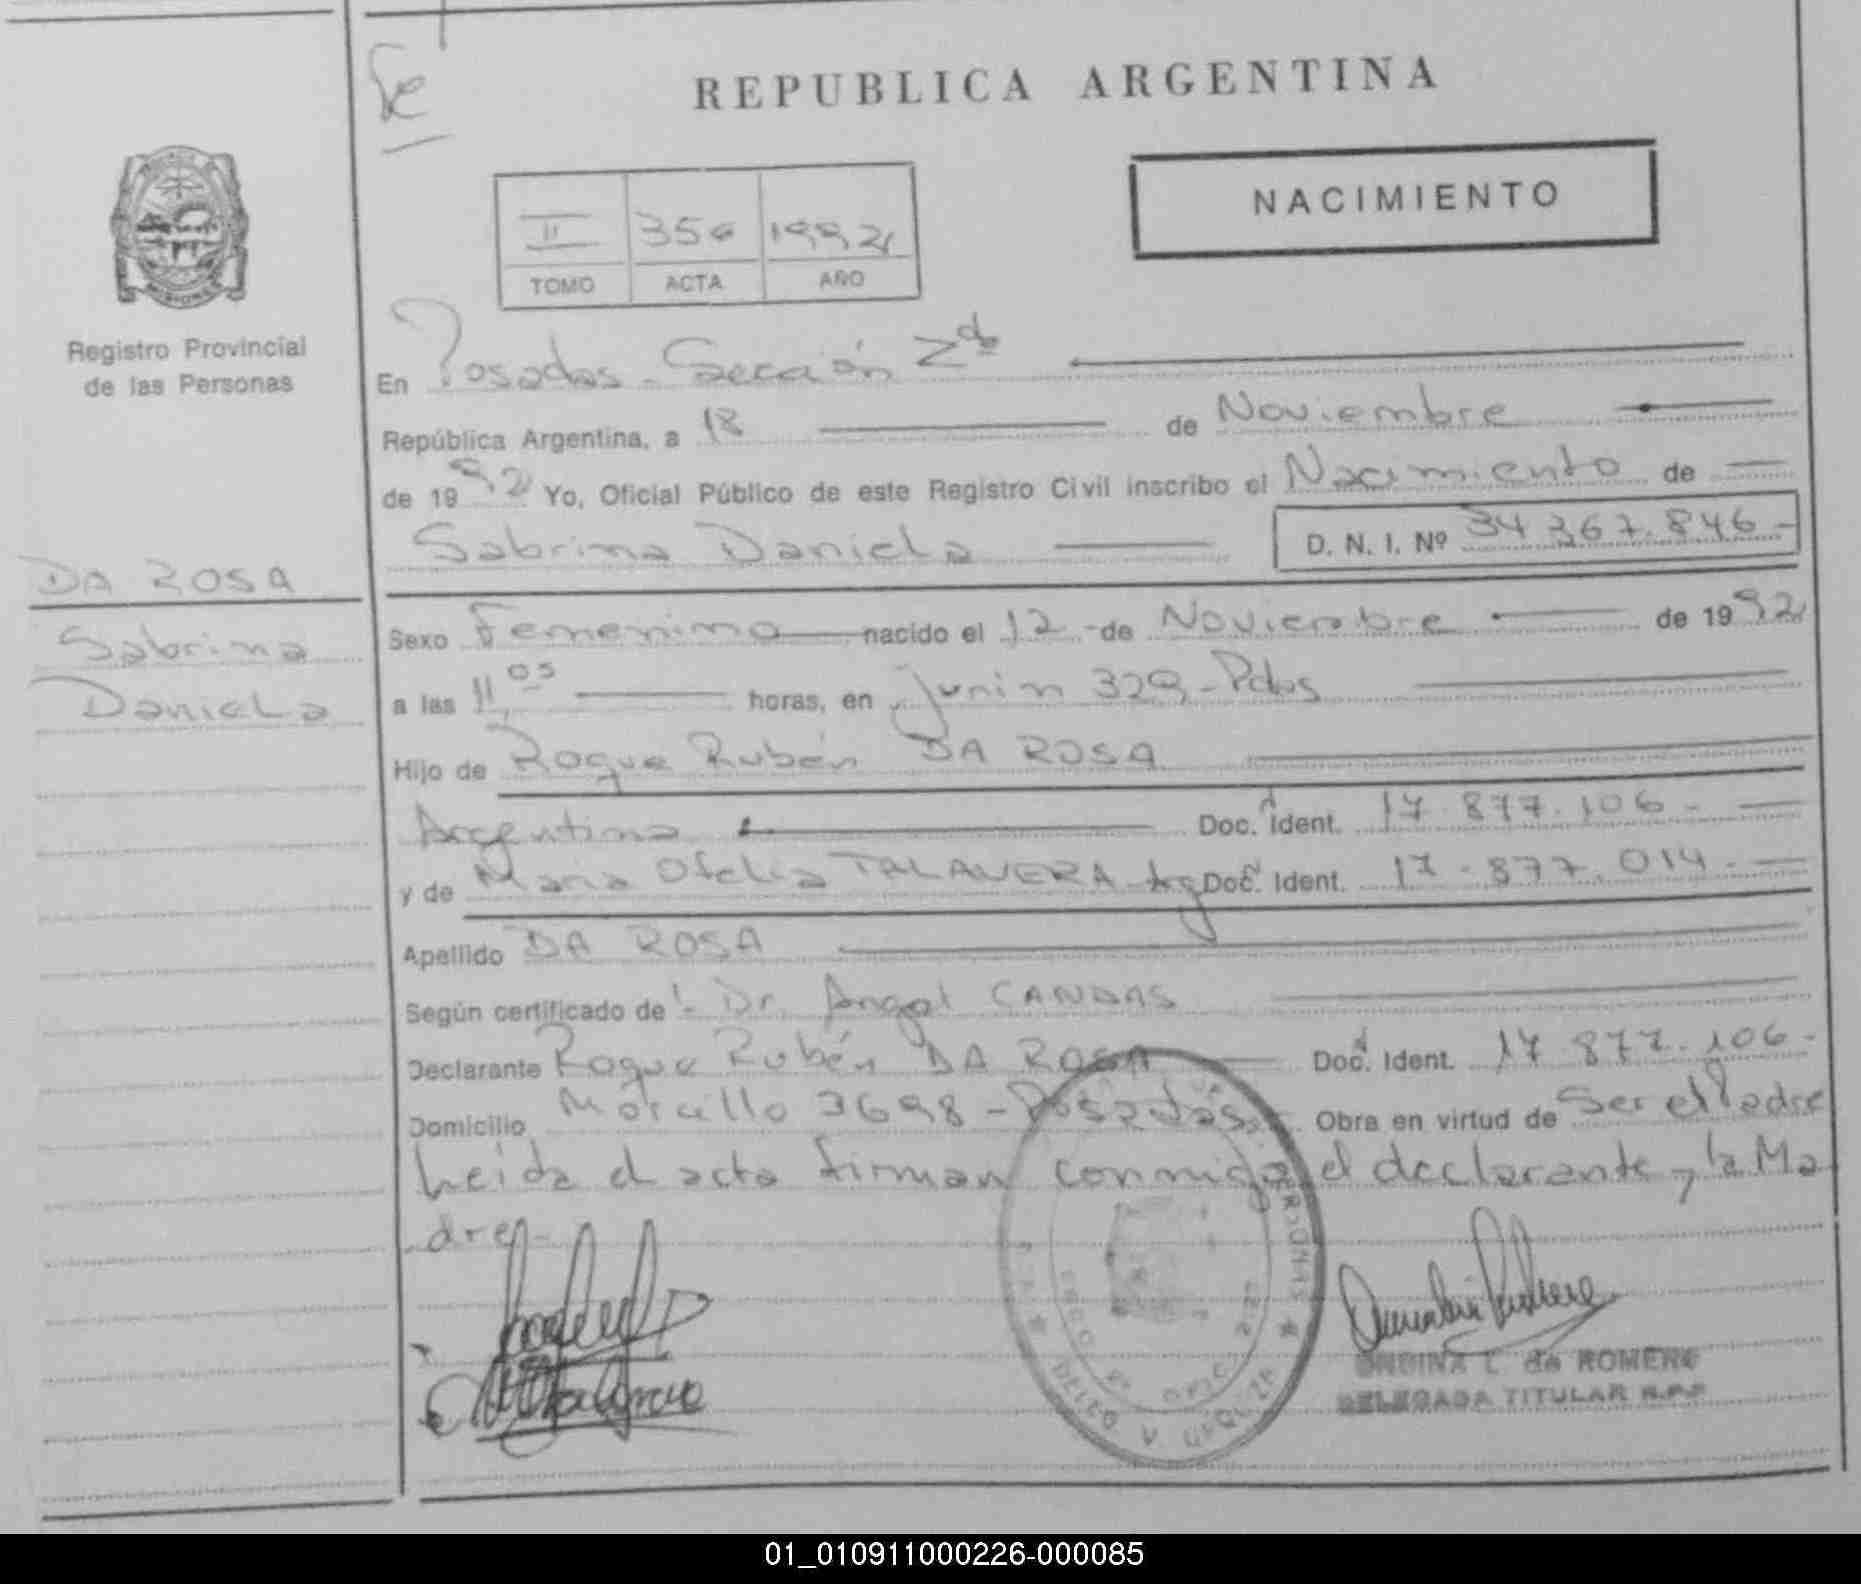 REPUBLICA ARGENTINA
NACIMIENTO
II 356 1992
TOMO ACTA AÑO
MISIONES
Registro Provincial
de las Personas
DA ROSA
Sabrina
Daniela
En Posadas - Sección 2da
República Argentina, a 18 de Noviembre
de 1992 Yo, Oficial Público de este Registro Civil inscribo el Nacimiento de
Sabrina Daniela D. N. I. Nº 34 367.846-
Sexo Femenino nacido el 12 - de Noviembre de 1992
a las 11,05 horas, en Junín 329 - Pdas
Hijo de Roque Rubén DA ROSA
Argentino Doc. Ident. 17.877.106-
y de Maria Ofelia TALAVERA Arg Doc. Ident. 17.877.014-
Apellido DA ROSA
Según certificado de: Dr. Angel CANDAS
Declarante Roque Rubén DA ROSA Doc. Ident. 17.877.106-
Domicilio Morcillo 3698 - Posadas Obra en virtud de Ser el Padre
Leída el acta firman conmigo el declarante y la Ma
dre-
ONDINA L. de ROMERO
DELEGADA TITULAR R.P.P
01_010911000226-000085